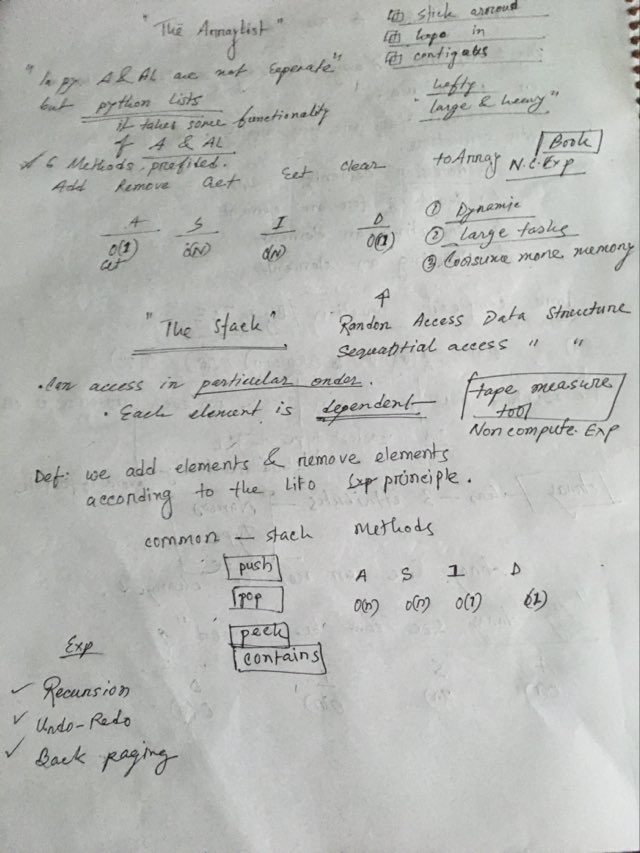 "The Arraylist"
stick around
hope in
contigates
hefty
"large & heavy"
"In py A & AL are not seperate"
but python lists
it takes some functionality
of A & AL
6 Methods prefited.
Add Remove Get Set Clear toArray
Book
N.C. Exp
A S I D
O(1) O(N) O(N) O(1)
Get
① Dynamic
② Large tasks
③ Consume more memory
"The stack"
Randon Access Data Structure
Sequential access " "
• Can access in particular order.
• Each element is dependent
tape measure
tool
Non compute. Exp
Def: we add elements & remove elements
according to the LIFO principle.
common — stack Methods
push
pop
peek
contains
A S I D
O(n) O(n) O(1) O(1)
Exp
✓ Recursion
✓ Undo-Redo
✓ Back paging